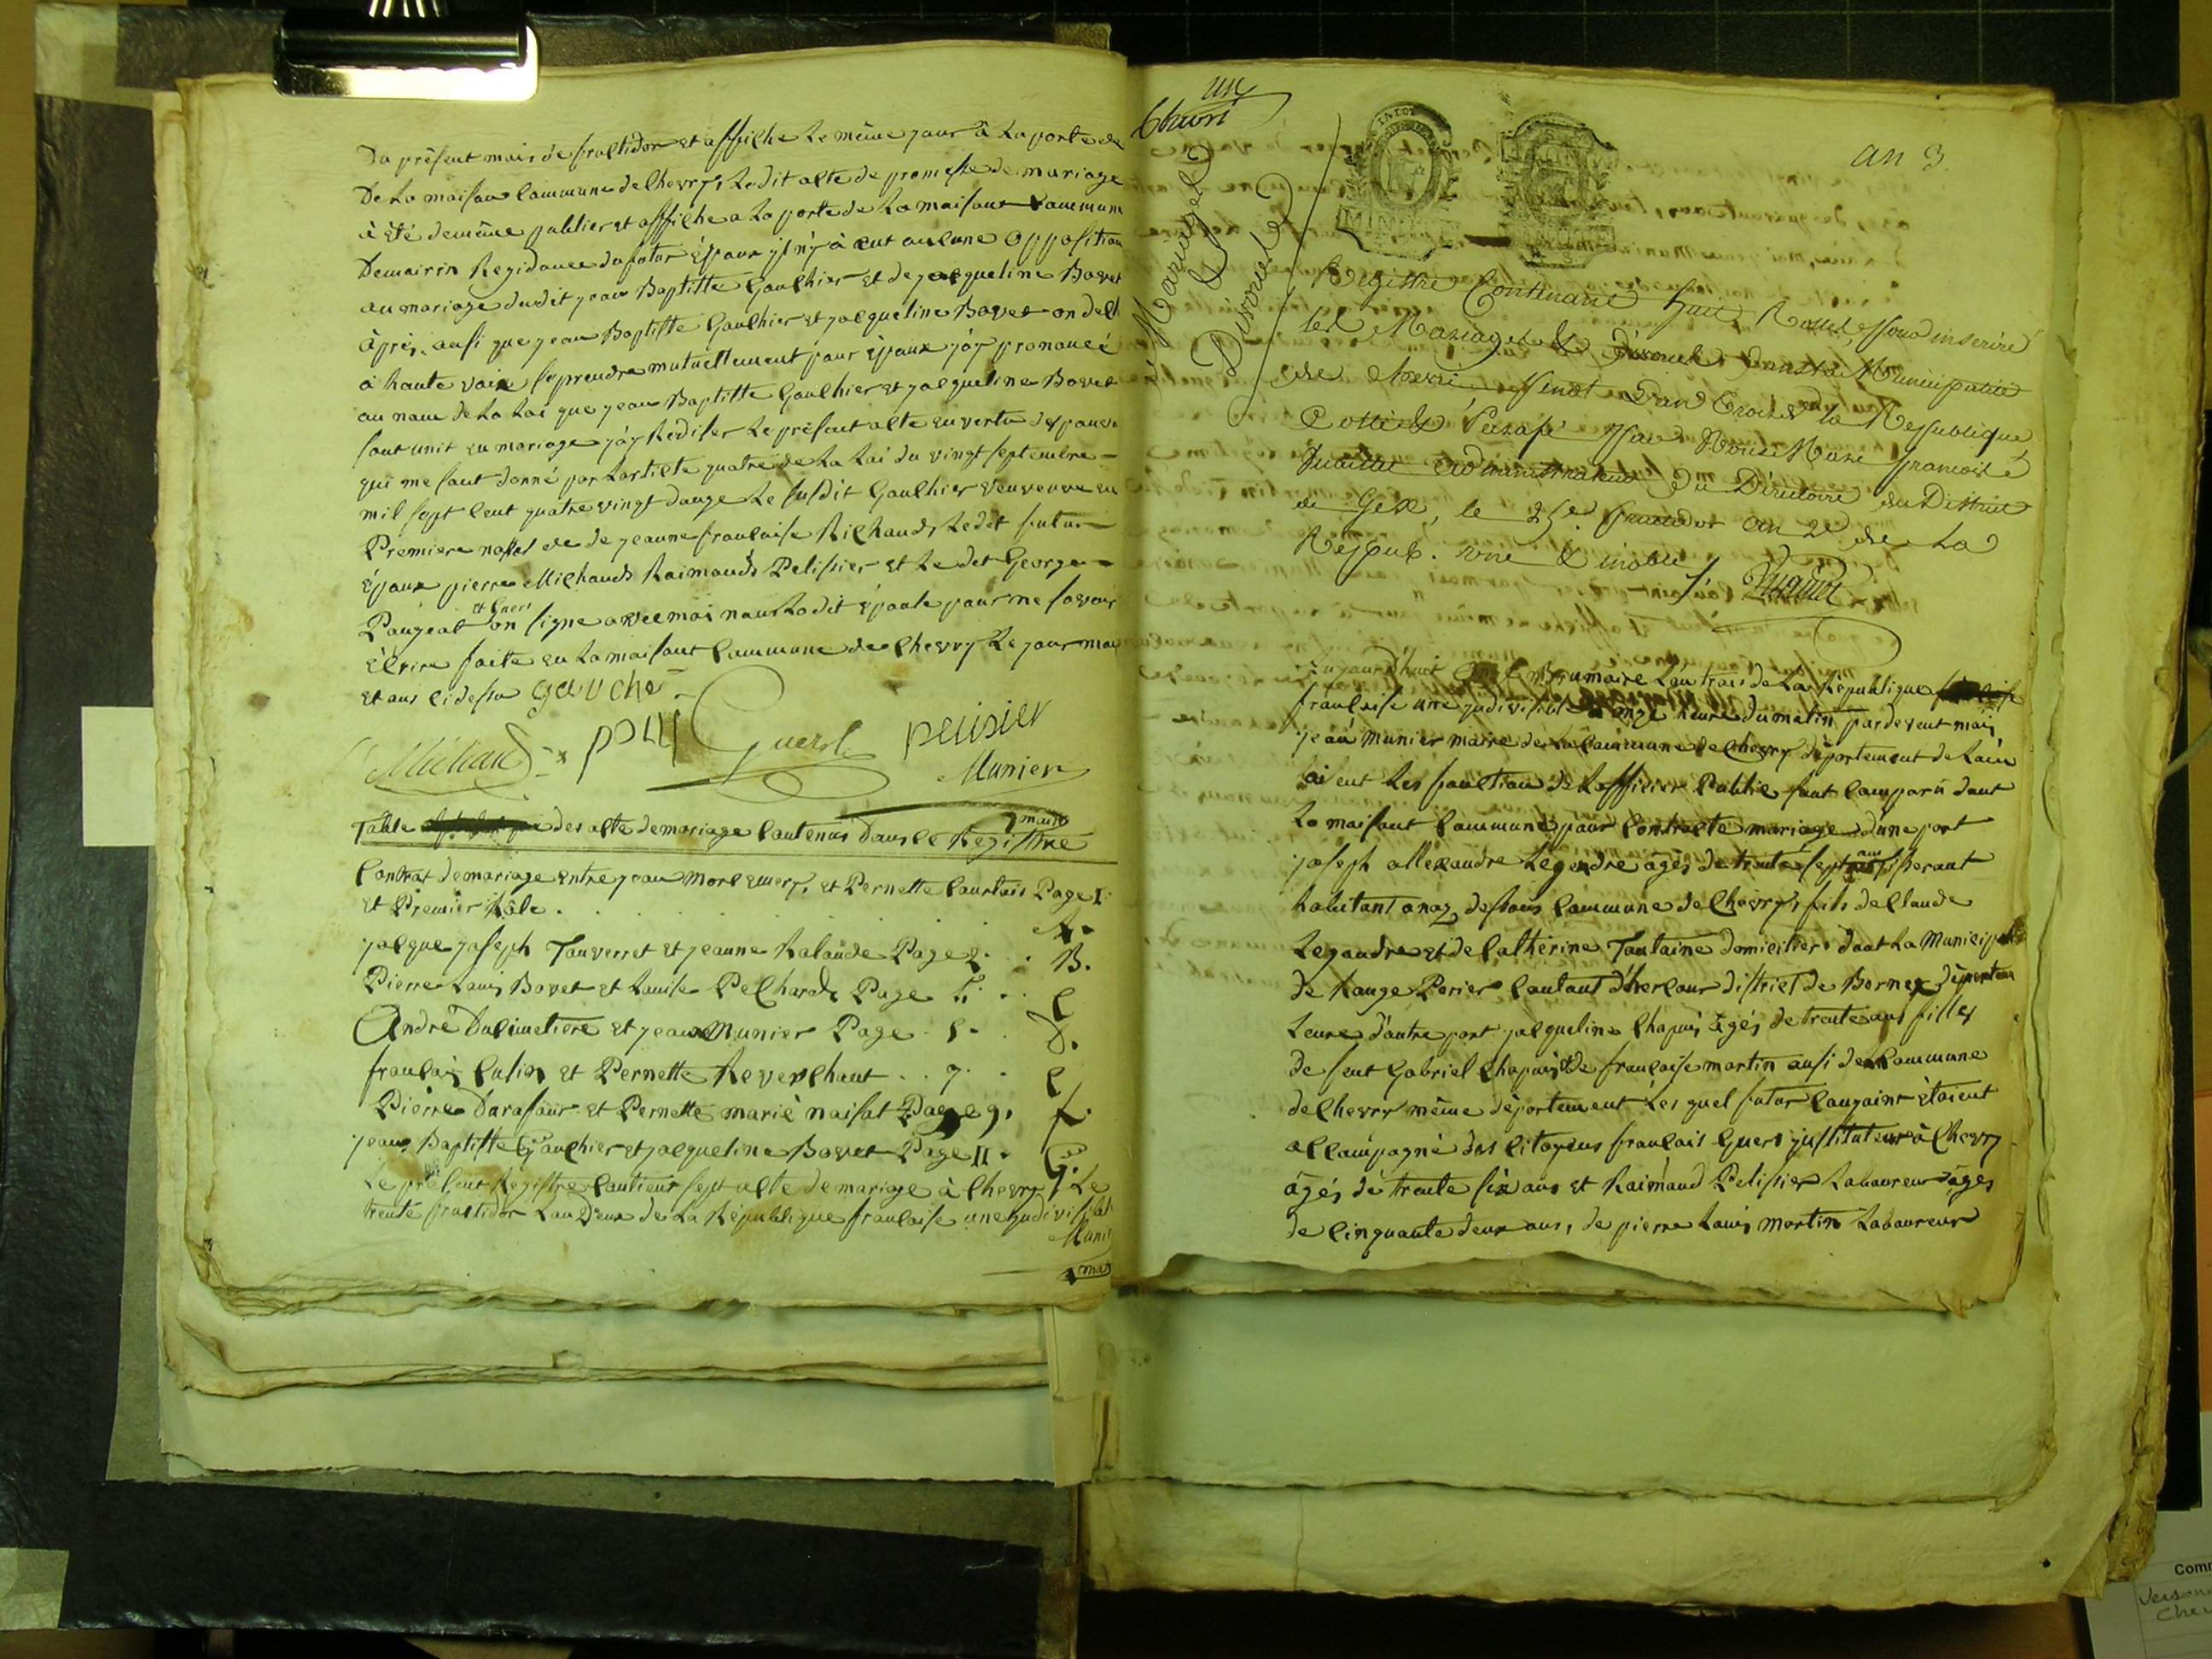 Du présent mois de fructidor et affiché le même jour à la porte de
De la maison commune de Chevry, ledit acte de promesse de mariage
à été demême publier et affiché a la porte de la maisont commune
Demairin Rezidance du futur époux y n'y à eut aucune opposition
au mariage dudit jean Baptitte Gauthier et de jacqueline Bovet
après. ausi que jean Baptitte Gauthier et jacqueline Bovet on decl
à haute voix se prendre mutuellement pour époux j'ay prononcé
au nom de la loi que jean Baptitte Gauthier et jacqueline Bovet
sont unit en mariage j'ay Rediser le présent acte en vertu des pouvo
qui me sont donné par lartilte quatre de la loi du vingt septembre
mil sept cent quatre vingt douze le susdit Gauthier veuveuve en
Premiere nosse de de jeanne francoise Richaud, ledit futur
époux pierre Michaud Raimand Pelissier et le dit George
Paugeat et Guers on signe avec moi nous ladit épouse pour ne savoir
écrire faite en la maisont commune de Chevry le jour moi
et ans cidessu gauche
Michaud Guers pelisier
Munier
maire
Table des acte de mariage contenus dans le Registre
Contrat de mariage entre jean Morl emery, et Pernette Courtois Page 1
et Premier Rôle . A.
jacque joseph Tauverret et jeanne Lalaude Page 2. B.
Pierre Louis Bovet et Louise Pelchard Page C
André Dulimetiere et jean Munier Page 5. D.
francois Cusin et Pernette Reverchaut . . 7. E
Pierre Darasaur et Pernette marie naisat Page 9. f.
jean Baptitte Gauthier et jacqueline Bovet Page 11. G.
Le présent Registre contient sept acte de mariage à Chevry le
trente fructidor l'an Deux de la République francaise une yndivisible
Munie
mai
un
Chevri
an 3.
Mariages
&
Divorces
Registre Contenant huit Rolles pour inscrire
les Mariages & divorces dans la Municipalité
de Chevri, pendt l'an Troise de la République
Cotté & Parafé par Nous Marie françois
administrateur du Directoire du District
de Gex, le 25e. fructidor an 2e de la
Repub. une & indble
Aujourd'huit onze Brumaire L'an trois de la République
francaise une yndivisible à onze heure du matin pardevent moi,
jean munier maire de la commune de Chevry département de Lain
aient les fonction de L'officier Public sont comparu dant
La maisont commune pour contracte mariage d'une part
joseph allexandre Legendre âgés de trente sept ans tisserant
habitant anaz dessous commune de Chevry, fils de Claude
Legandre et de Catherine Toutaine domicilier dant La Municipali
de Range Perier cantant d'hercour district de Bernex départem
Leure d'autre part jacqueline Chapuis âgés de trente ans filles
de feut Gabriel Chapuis et de francaise martin ausi de commune
de Chevry même département Les quel futur conjoint étoient
accompagné des citoyens francois Guers justituteur à Chevry
âgés de trente six ans et Raimand Pelissier Laboureur âgés
de cinquante deux ans, de pierre Louis martin Laboureur